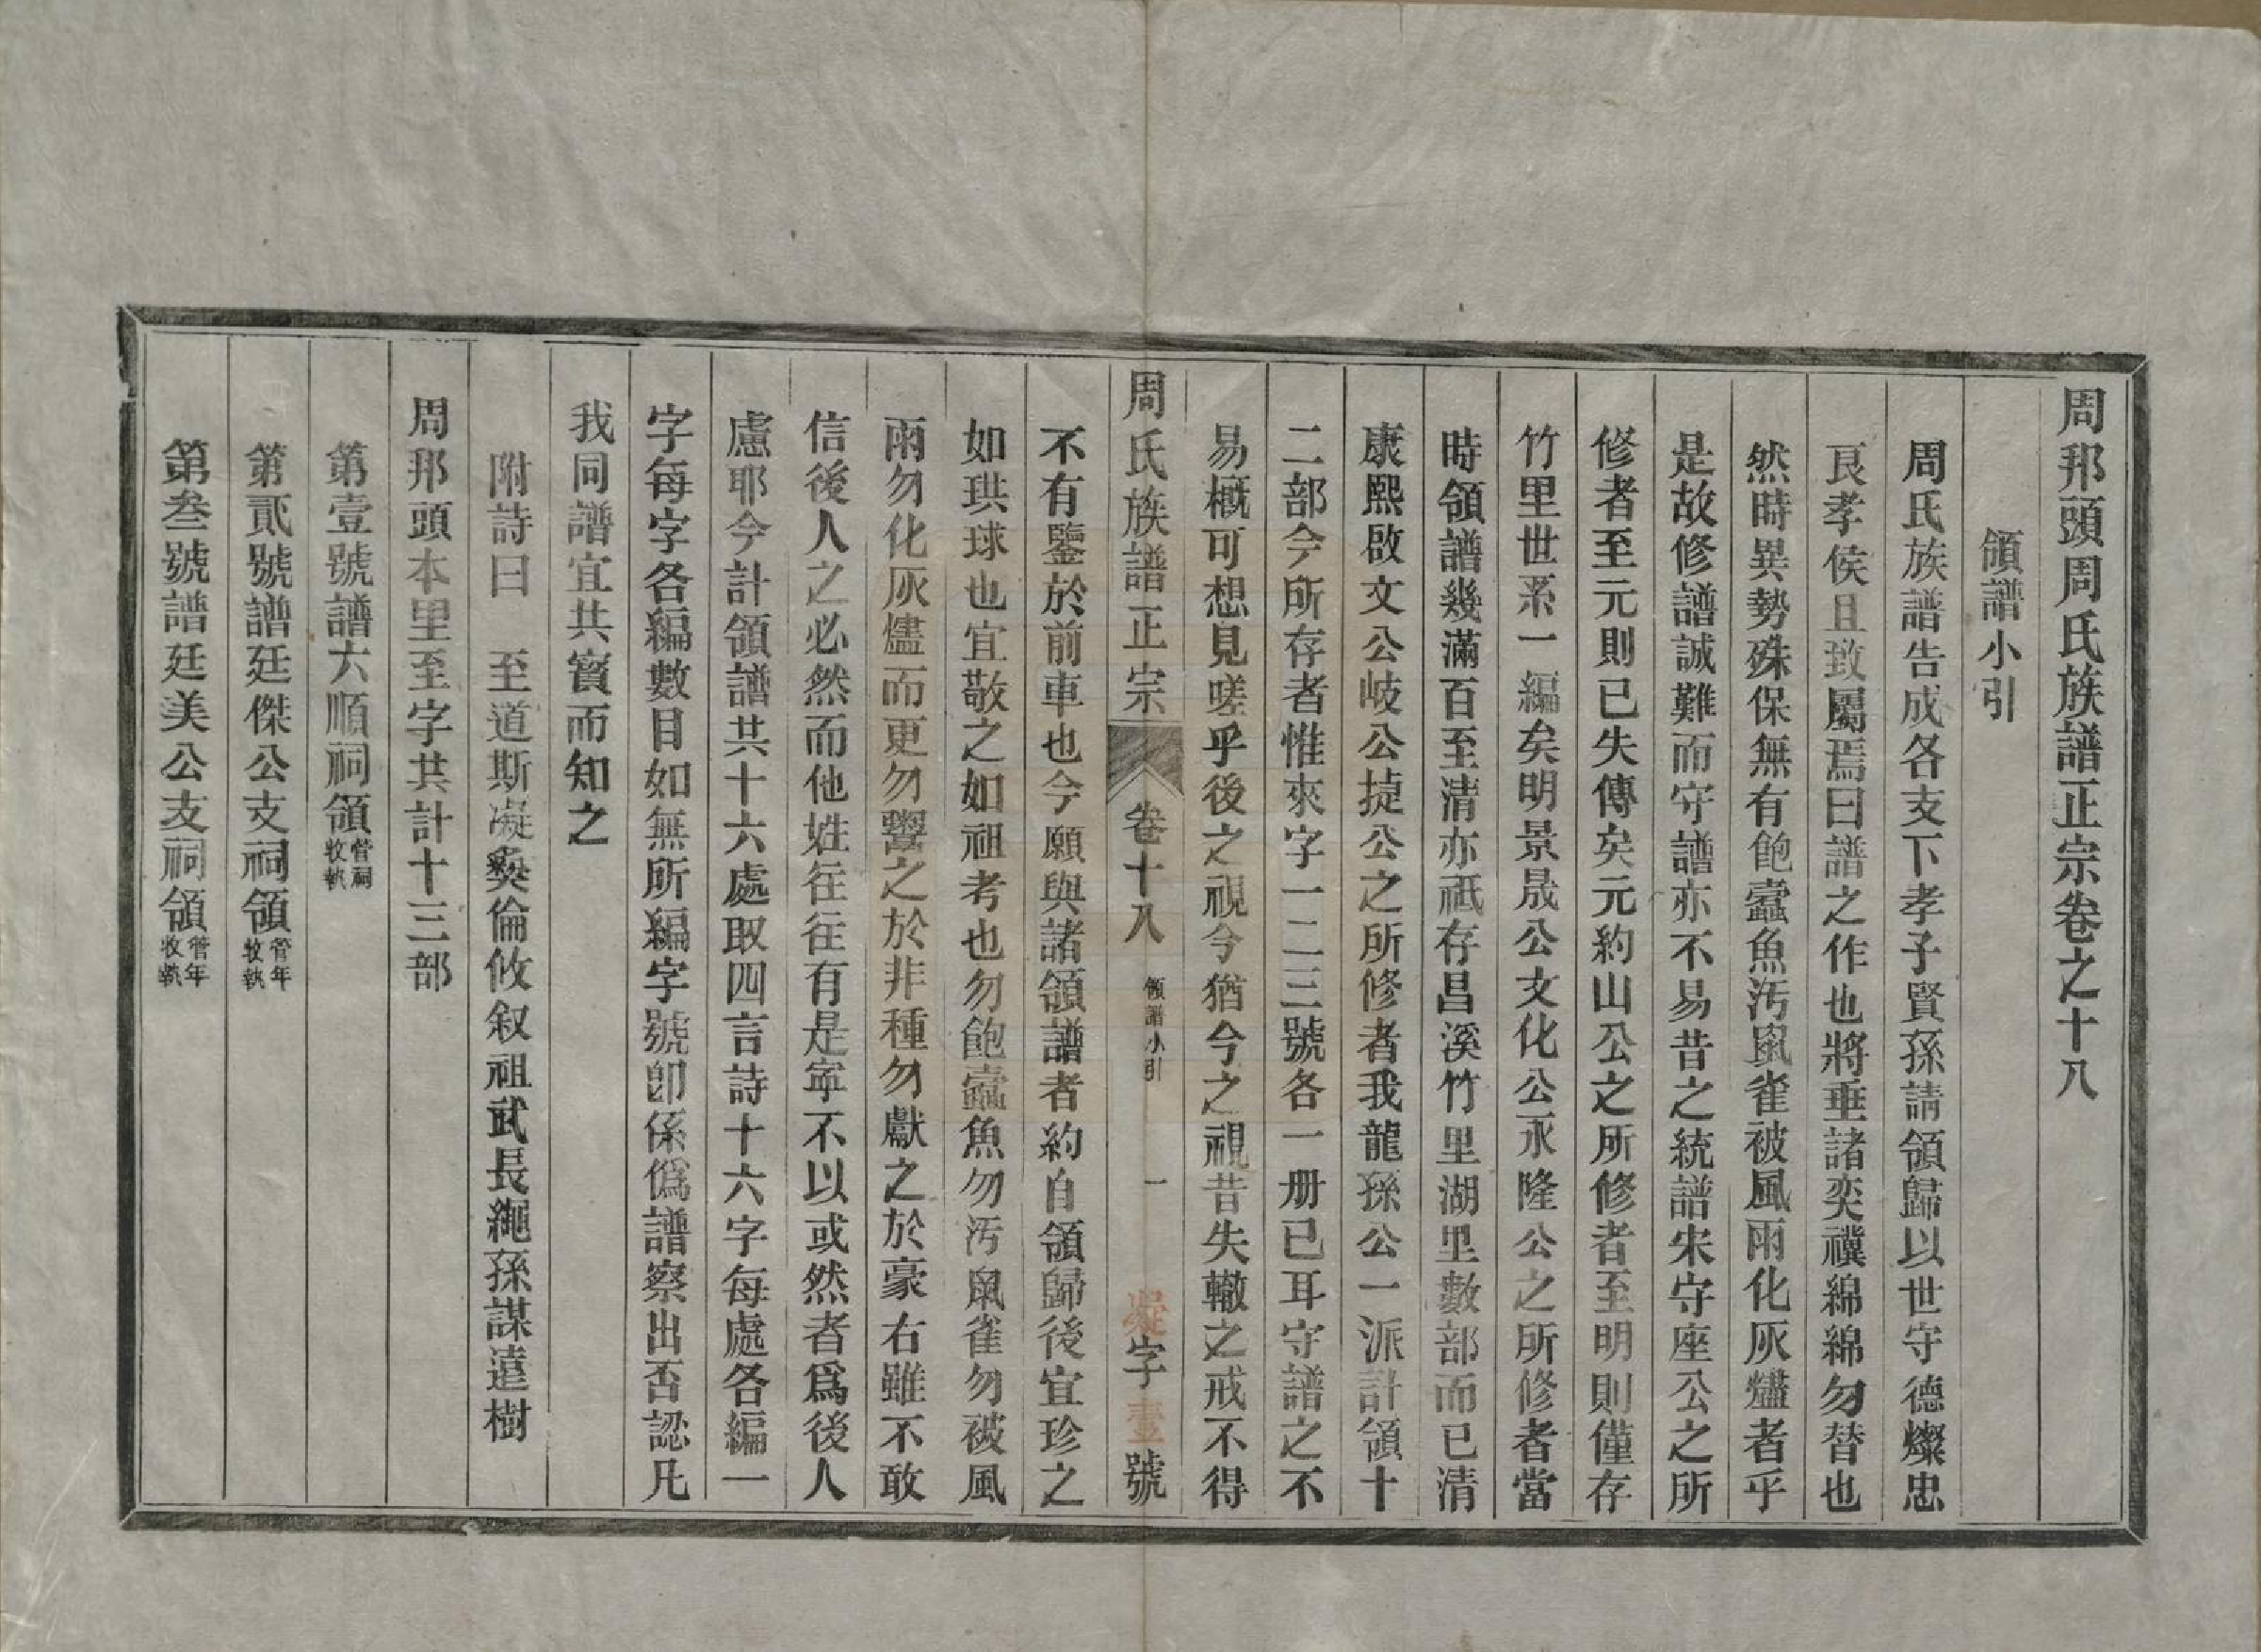 周邦頭周氏族譜正宗卷之十八
領譜小引
周氏族譜告成各支下孝子賢孫請領歸以世守德燦忠
良孝侯且致屬焉曰譜之作也將垂諸奕禩綿綿勿替也
然時異勢殊保無有飽蠹魚汚鼠雀被風雨化灰燼者乎
是故修譜誠難而守譜亦不易昔之統譜宋守座公之所
修者至元則已失傳矣元約山公之所修者至明則僅存
竹里世系一編矣明景晟公文化公永隆公之所修者當
時領譜幾滿百至清亦祇存昌溪竹里湖里數部而已清
康熙啟文公岐公㨗公之所修者我龍孫公一派計領十
二部今所存者惟來字一二三號各一册已耳守譜之不
易概可想見嗟乎後之視今猶今之視昔失轍之戒不得
周氏族譜正宗
卷十八
領譜小引
一
凝字壹號
不有鑒於前車也今願與諸領譜者約自領歸後宜珍之
如珙球也宜敬之如祖考也勿飽蠹魚勿汚鼠雀勿被風
雨勿化灰燼而更勿鬻之於非種勿獻之於豪右雖不敢
信後人之必然而他姓往往有是寧不以或然者爲後人
慮耶今計領譜共十六處取四言詩十六字每處各編一
字每字各編數目如無所編字號卽係僞譜察出否認凡
我同譜宜共寶而知之
附詩曰　至道斯凝奕倫攸叙祖武長繩孫謀遠樹
周邦頭本里至字共計十三部
第壹號譜六順祠領管祠收執
第貳號譜廷傑公支祠領管年收執
第叁號譜廷美公支祠領管年收執